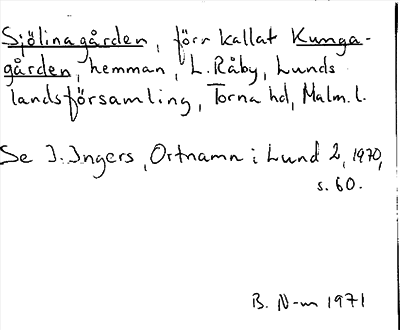 Sjölinagården, förr kallat Kunga-
gården, hemman, L. Råby, Lunds
landsförsamling, Torna hd, Malm. l.
Se I. Ingers, Ortnamn i Lund 2, 1970,
s. 60.
B. N-m 1971